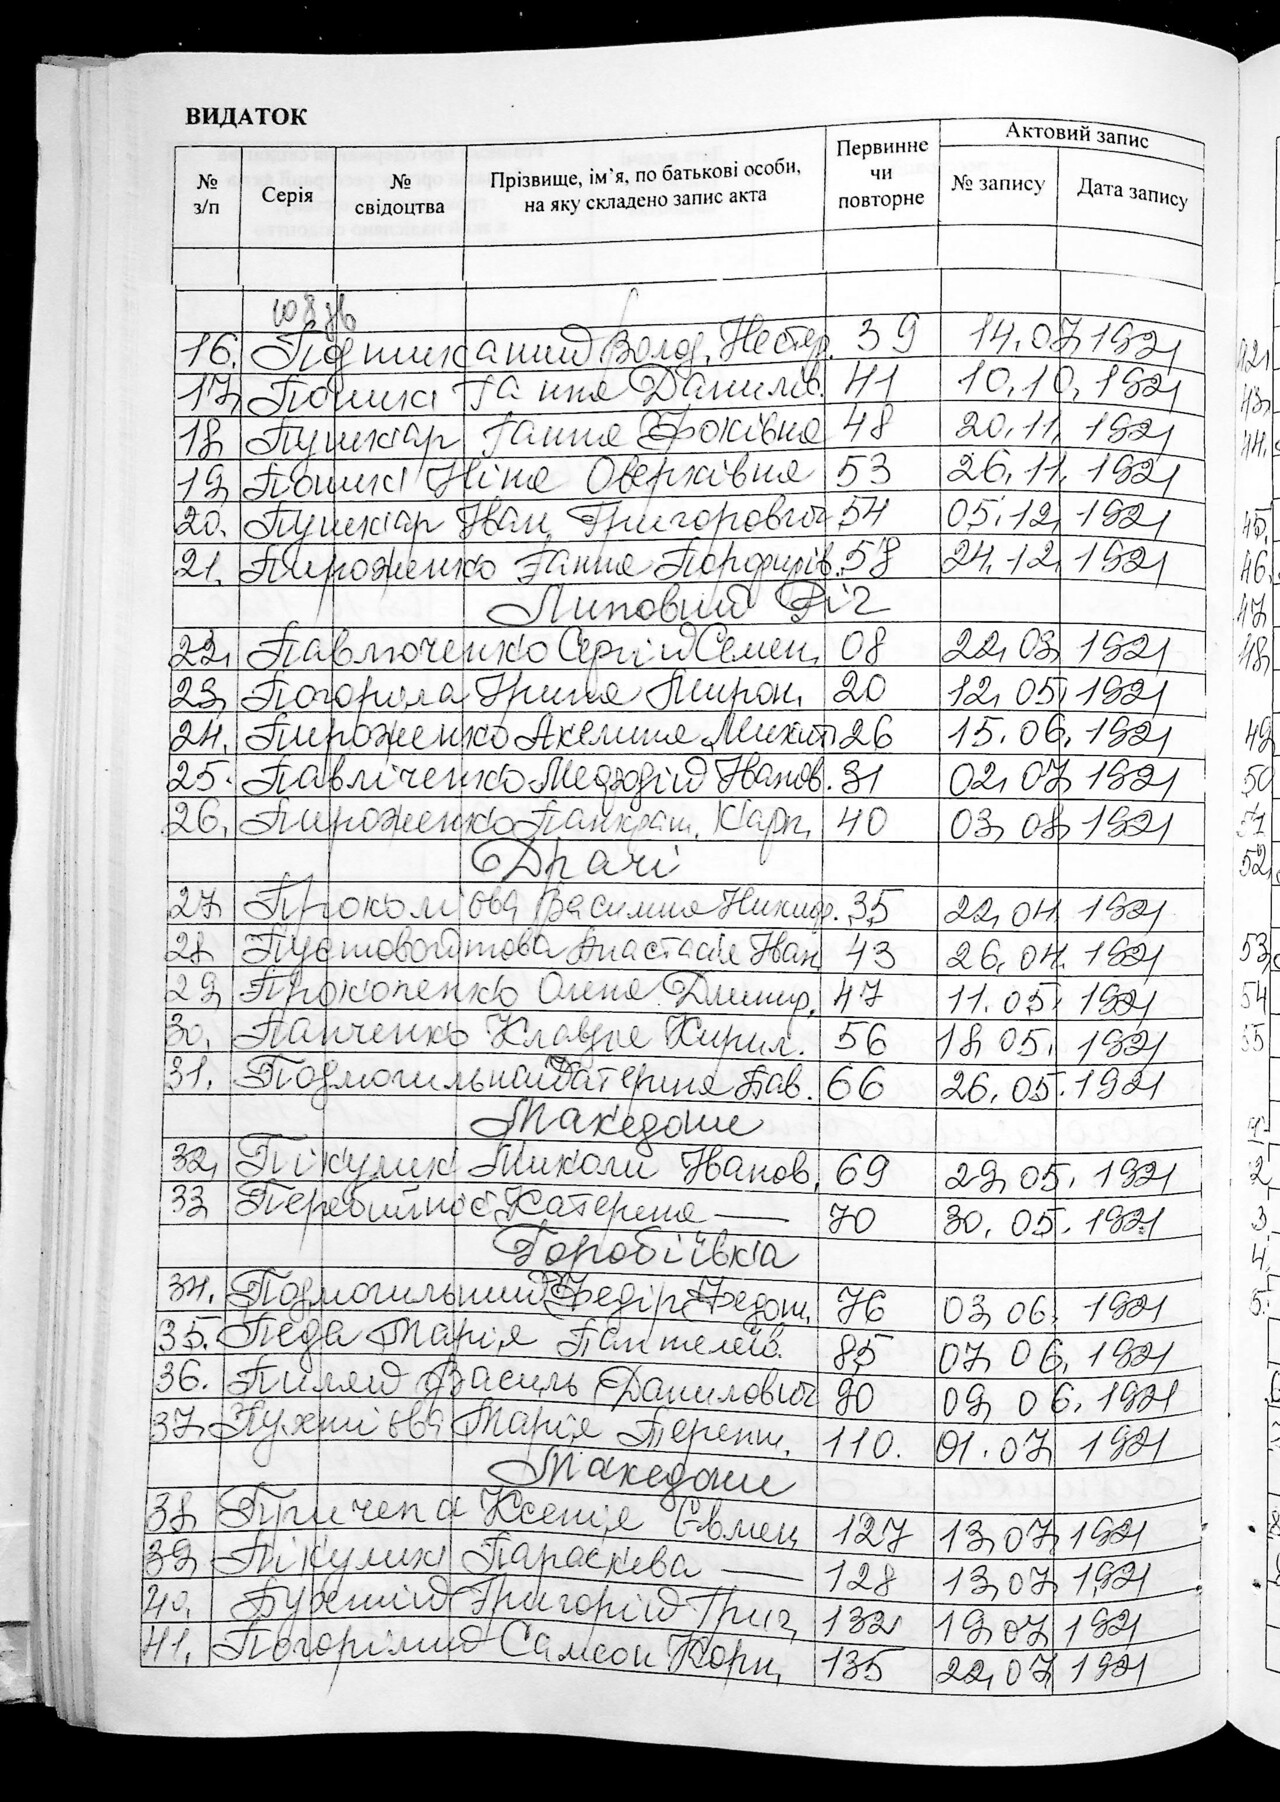 ВИДАТОК
№ з/п Серія № свідоцтва Прізвище, ім’я, по батькові особи, на яку складено запис акта Первинне чи повторне Актовий запис
№ запису Дата запису
16. Волод. Нестер. 39 14.07 1921
17. Ганна Данилів. 41 10.10. 1921
18. Пушкар Ганна 48 20.11. 1921
19. Ніна Оверківна 53 26.11. 1921
20. Пушкар Іван Григорович 54 05.12. 1921
21. Пироженко Ганна Порфирів. 58 24.12. 1921
Липовий Ріг
22. Павлюченко Сергій Семен. 08 22.03. 1921
23. Погоріла Ірина Мирон. 20 12.05. 1921
24. Пироженко Акелина Микит. 26 15.06. 1921
25. Павліченко Мефодій Іванов. 31 02.07. 1921
26. Пироженко Панкрат. Карп. 40 03.08. 1921
Драчі
27. Василина Никиф. 35 22.04. 1921
28. Пустовойтова Анастасія Іван. 43 26.04. 1921
29. Прокопенко Олена Дмитр. 47 11.05. 1921
30. Панченко Клавдія Кирил. 56 18.05. 1921
31. Подмогильна Катерина Пав. 66 26.05. 1921
Македони
32. Пікулик Миколи Іванов. 69 29.05. 1921
33. Перебийніс Катерина — 70 30.05. 1921
Горобіївка
34. Подмогильний Федір Федот. 76 03.06. 1921
35. Педа Марія Пантелеів. 85 07.06. 1921
36. Пиляй Василь Данилович 90 09.06. 1921
37. Марія Терент. 110. 01.07. 1921
Македони
38. Причепа Ксенія Євмен. 127 13.07. 1921
39. Пікулик Параскева — 128 13.07. 1921
40. Григорій Григ. 132 19.07. 1921
41. Погорілий Самсон Корн. 135 22.07. 1921